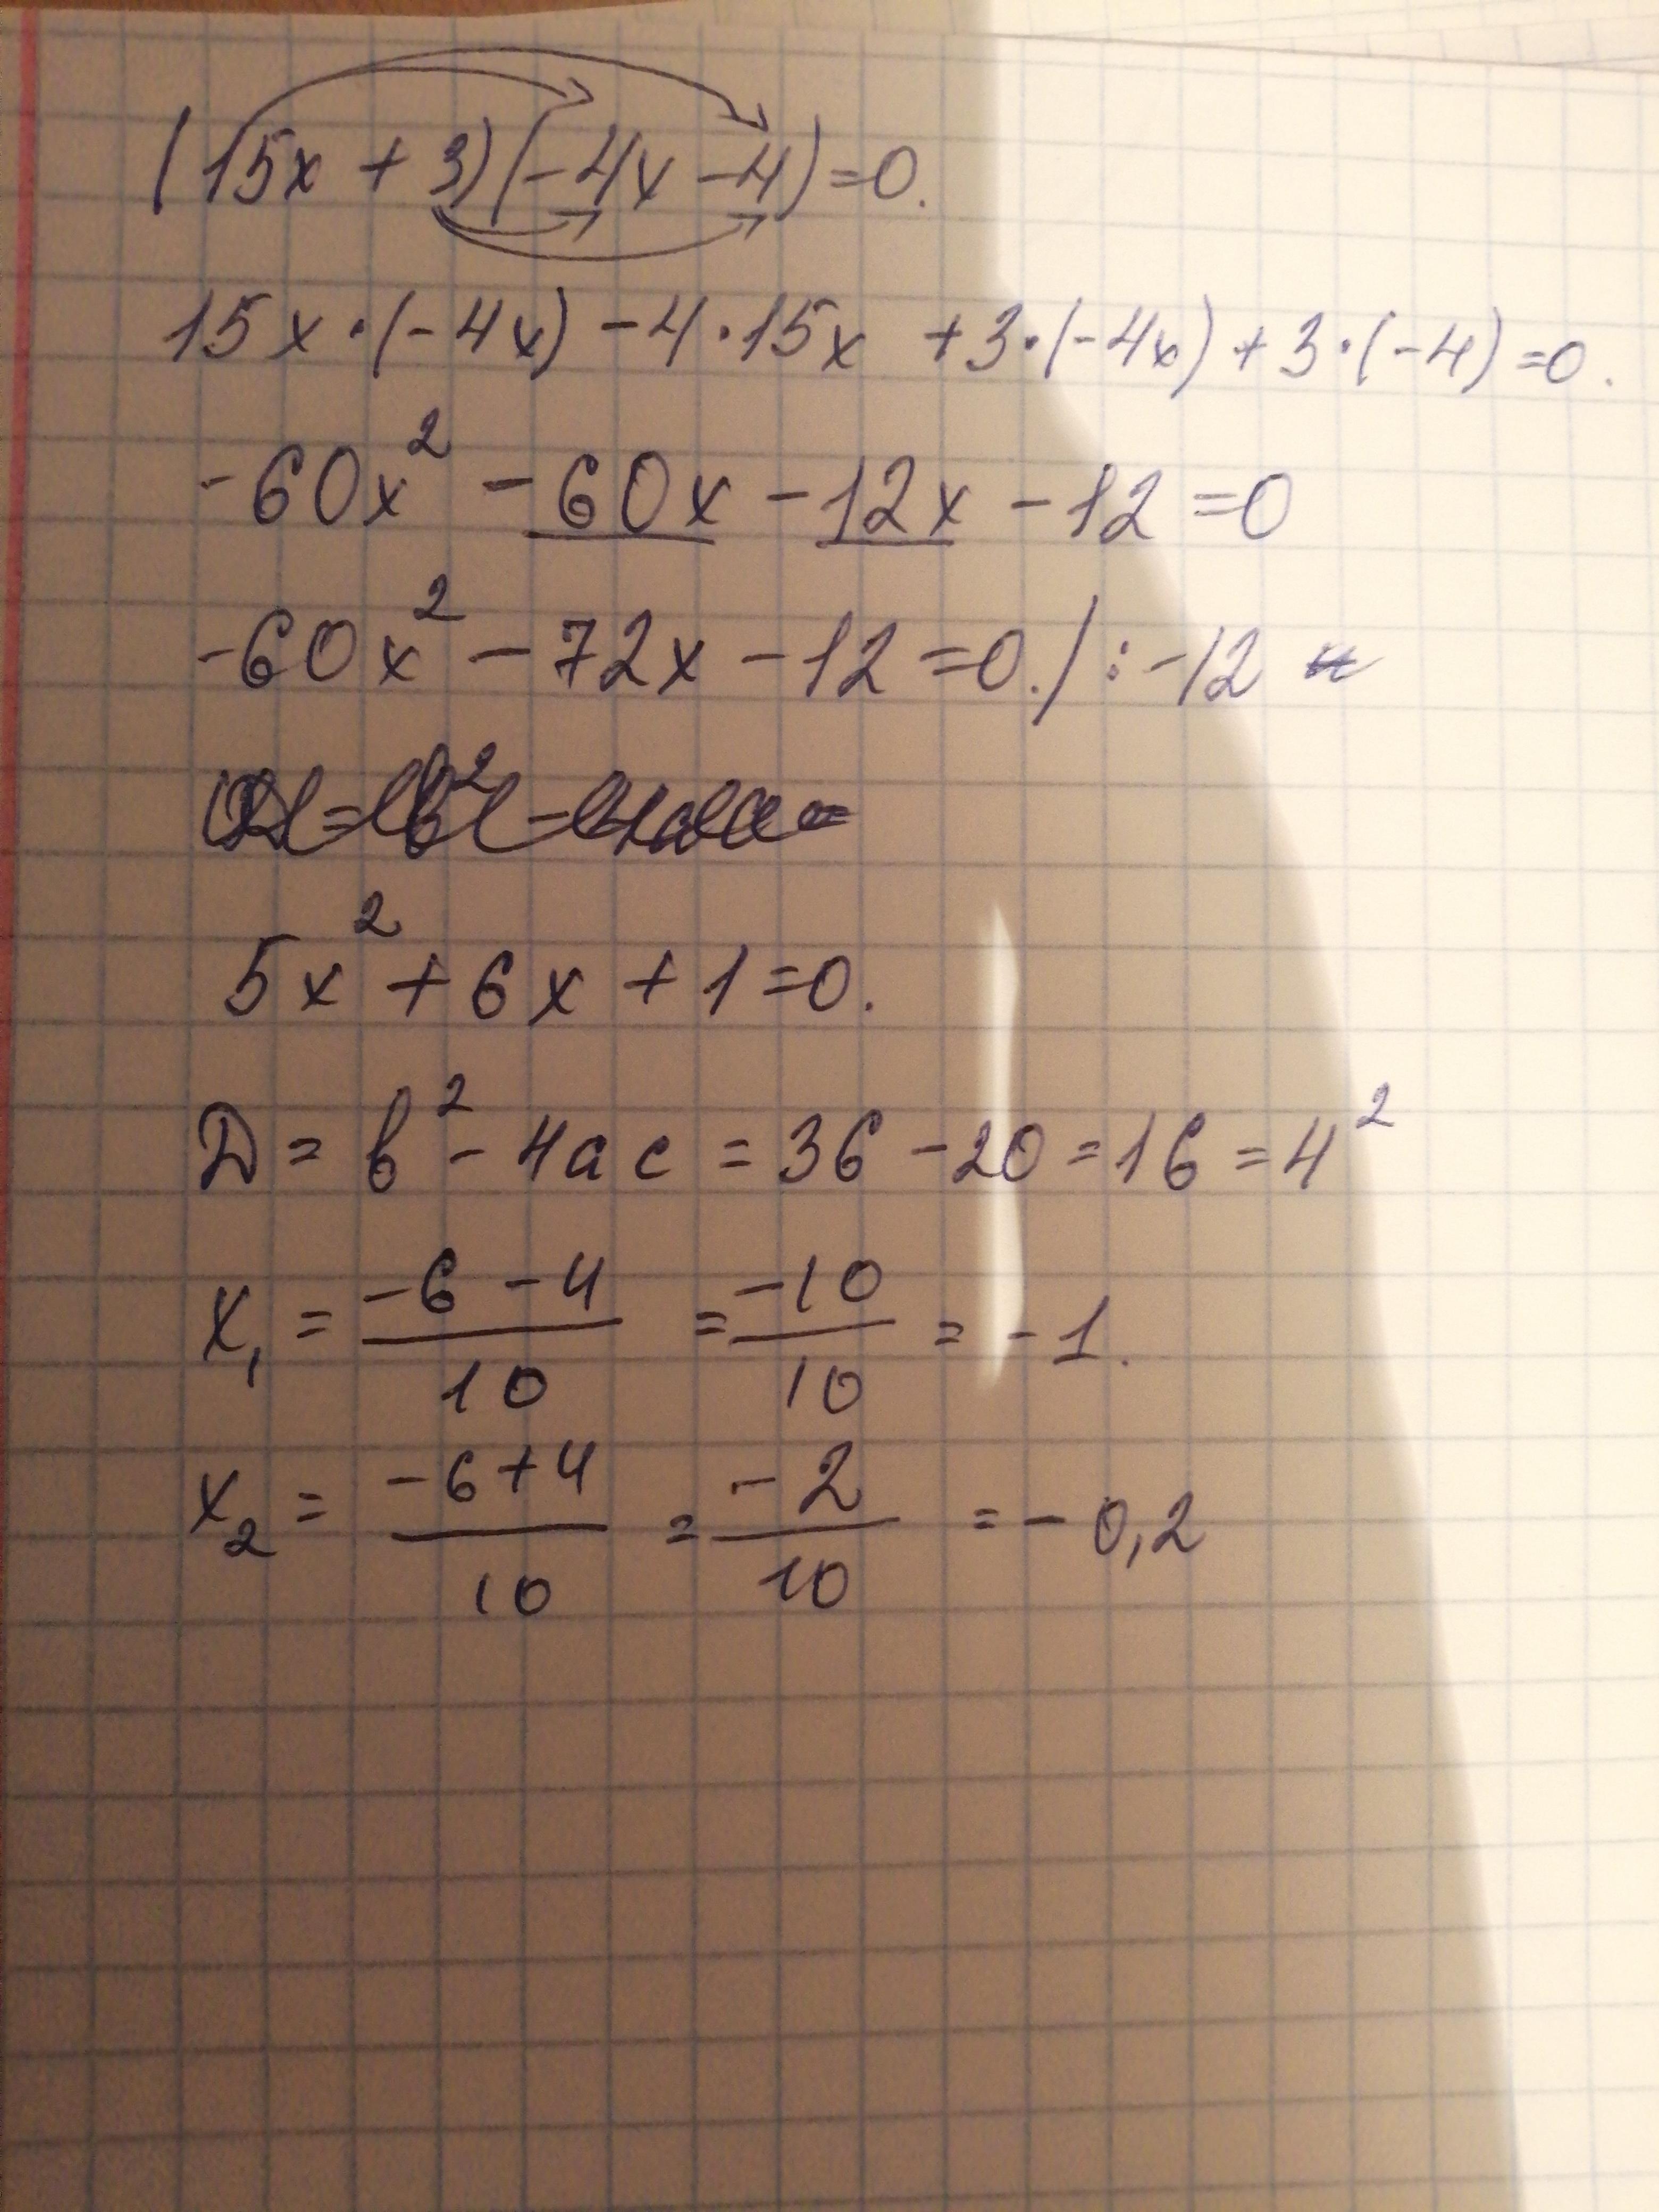 (15x + 3)(-4x -4)=0.
15x·(-4x) -4·15x +3·(-4x)+3·(-4)=0.
-60x² -60x -12x -12=0
-60x² -72x -12=0./:-12
5x² +6x +1=0.
D= b² -4ac =36 -20=16=4²
x₁ = \frac{-6 -4}{10} = \frac{-10}{10} = -1.
x₂ = \frac{-6+4}{10} = \frac{-2}{10} = -0,2